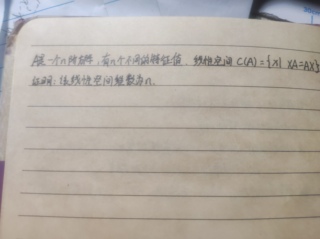 A是一个n阶矩阵,有n个不同的特征值,线性空间 C(A)={X| XA=AX}
证明:该线性空间维数为n.